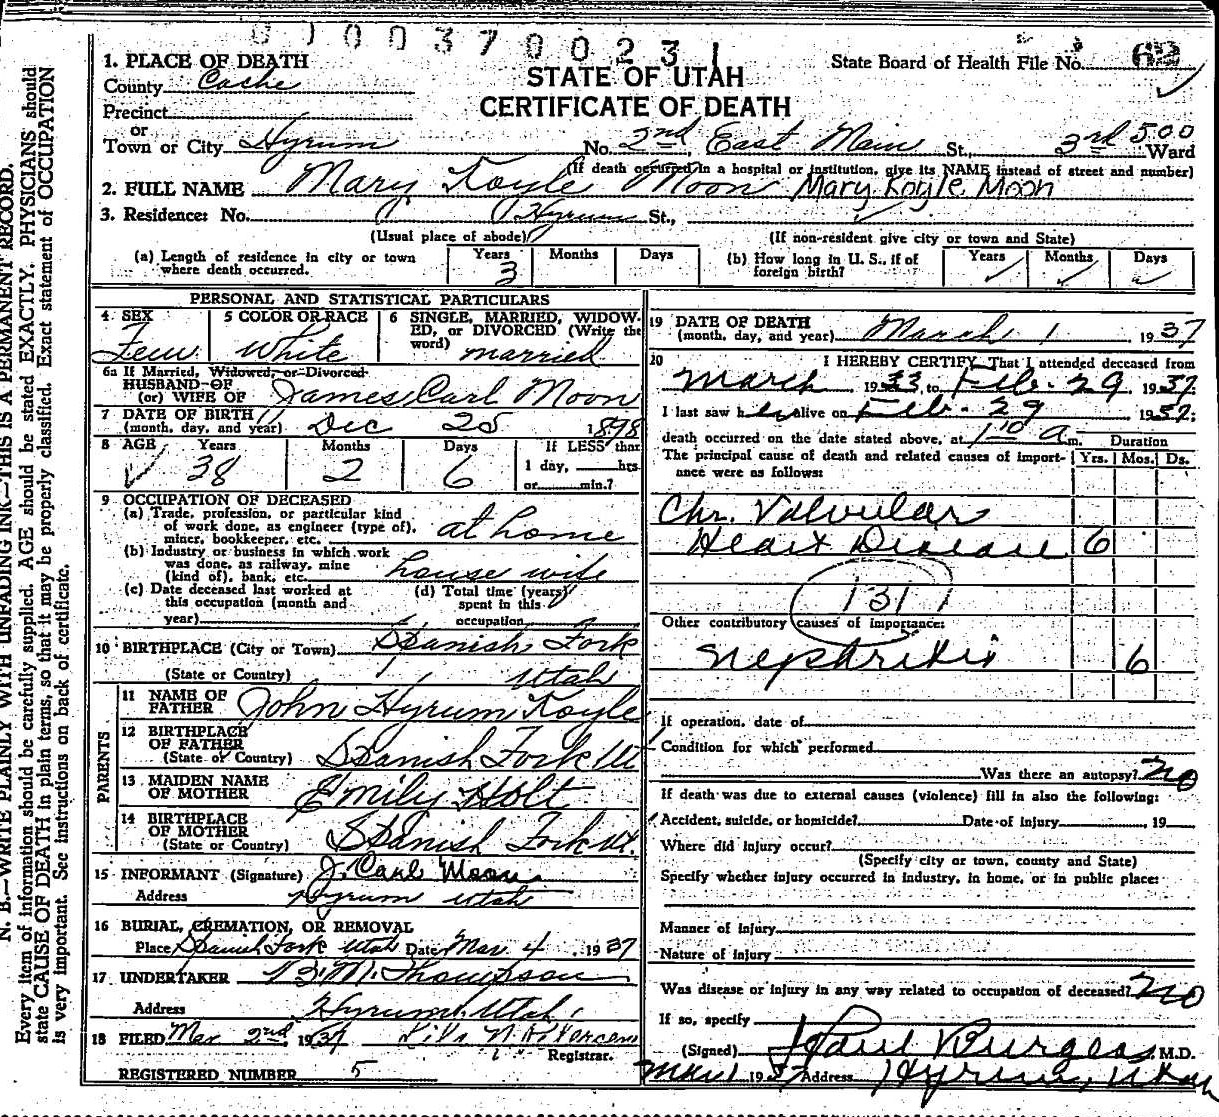 0 1 0 0 3 7 0 0 2 3 1
1. PLACE OF DEATH
STATE OF UTAH
CERTIFICATE OF DEATH
State Board of Health File No. 62
County Cache
Precinct
or
Town or City Hyrum No. 2nd East Main St., 3rd Ward
500
(If death occurred in a hospital or institution, give its NAME instead of street and number)
2. FULL NAME Mary Koyle Moon Mary Koyle Moon
3. Residence: No. Hyrum St.,
(Usual place of abode) (If non-resident give city or town and State)
(a) Length of residence in city or town where death occurred. Years 3 Months Days
(b) How long in U. S., if of foreign birth? Years Months Days
PERSONAL AND STATISTICAL PARTICULARS
4 SEX
Fem
5 COLOR OR RACE
White
6 SINGLE, MARRIED, WIDOWED, or DIVORCED (Write the word) married
6a If Married, Widowed, or Divorced
HUSBAND OF
(or) WIFE OF James Carl Moon
7 DATE OF BIRTH
(month, day, and year) Dec 25 1898
8 AGE Years Months Days If LESS than
38 2 6 1 day, hrs
or min.?
9 OCCUPATION OF DECEASED
(a) Trade, profession, or particular kind
of work done, as engineer (type of),
miner, bookkeeper, etc. at home
(b) Industry or business in which work
was done, as railway, mine
(kind of), bank, etc. house wife
(c) Date deceased last worked at
this occupation (month and
year)
(d) Total time (years)
spent in this
occupation
10 BIRTHPLACE (City or Town) Spanish Fork
(State or Country) Utah
PARENTS
11 NAME OF
FATHER John Hyrum Koyle
12 BIRTHPLACE
OF FATHER
(State or Country) Spanish Fork Ut
13 MAIDEN NAME
OF MOTHER Emily Holt
14 BIRTHPLACE
OF MOTHER
(State or Country) Spanish Fork Ut.
15 INFORMANT (Signature) J. Carl Moon
Address Hyrum Utah
16 BURIAL, CREMATION, OR REMOVAL
Place Spanish Fork Utah Date Mar 4, 1937
17 UNDERTAKER B. M. Thompson
Address Hyrum Utah
18 FILED Mar 2nd, 1937
Registrar.
REGISTERED NUMBER 5
19 DATE OF DEATH
(month, day, and year) March 1, 1937
20 I HEREBY CERTIFY, That I attended deceased from
March, 1933, to Feb. 29, 1937
I last saw her alive on Feb. 29 1937;
death occurred on the date stated above, at 1 10 a m. Duration
The principal cause of death and related causes of importance were as follows: Yrs. Mos. Ds.
Chr. Valvular
Heart Disease 6
131
Other contributory causes of importance:
Nephritis 6
If operation, date of
Condition for which performed
Was there an autopsy? No
If death was due to external causes (violence) fill in also the following:
Accident, suicide, or homicide? Date of injury, 19
Where did injury occur?
(Specify city or town, county and State)
Specify whether injury occurred in industry, in home, or in public place:
Manner of Injury
Nature of injury
Was disease or injury in any way related to occupation of deceased? No
If so, specify
(Signed) J Paul Burgess, M.D.
Mar 1 1937 Address Hyrum, Utah
N. B.—WRITE PLAINLY WITH UNFADING INK—THIS IS A PERMANENT RECORD.
Every item of information should be carefully supplied. AGE should be stated EXACTLY. PHYSICIANS should
state CAUSE OF DEATH in plain terms, so that it may be properly classified. Exact statement of OCCUPATION
is very important. See instructions on back of certificate.